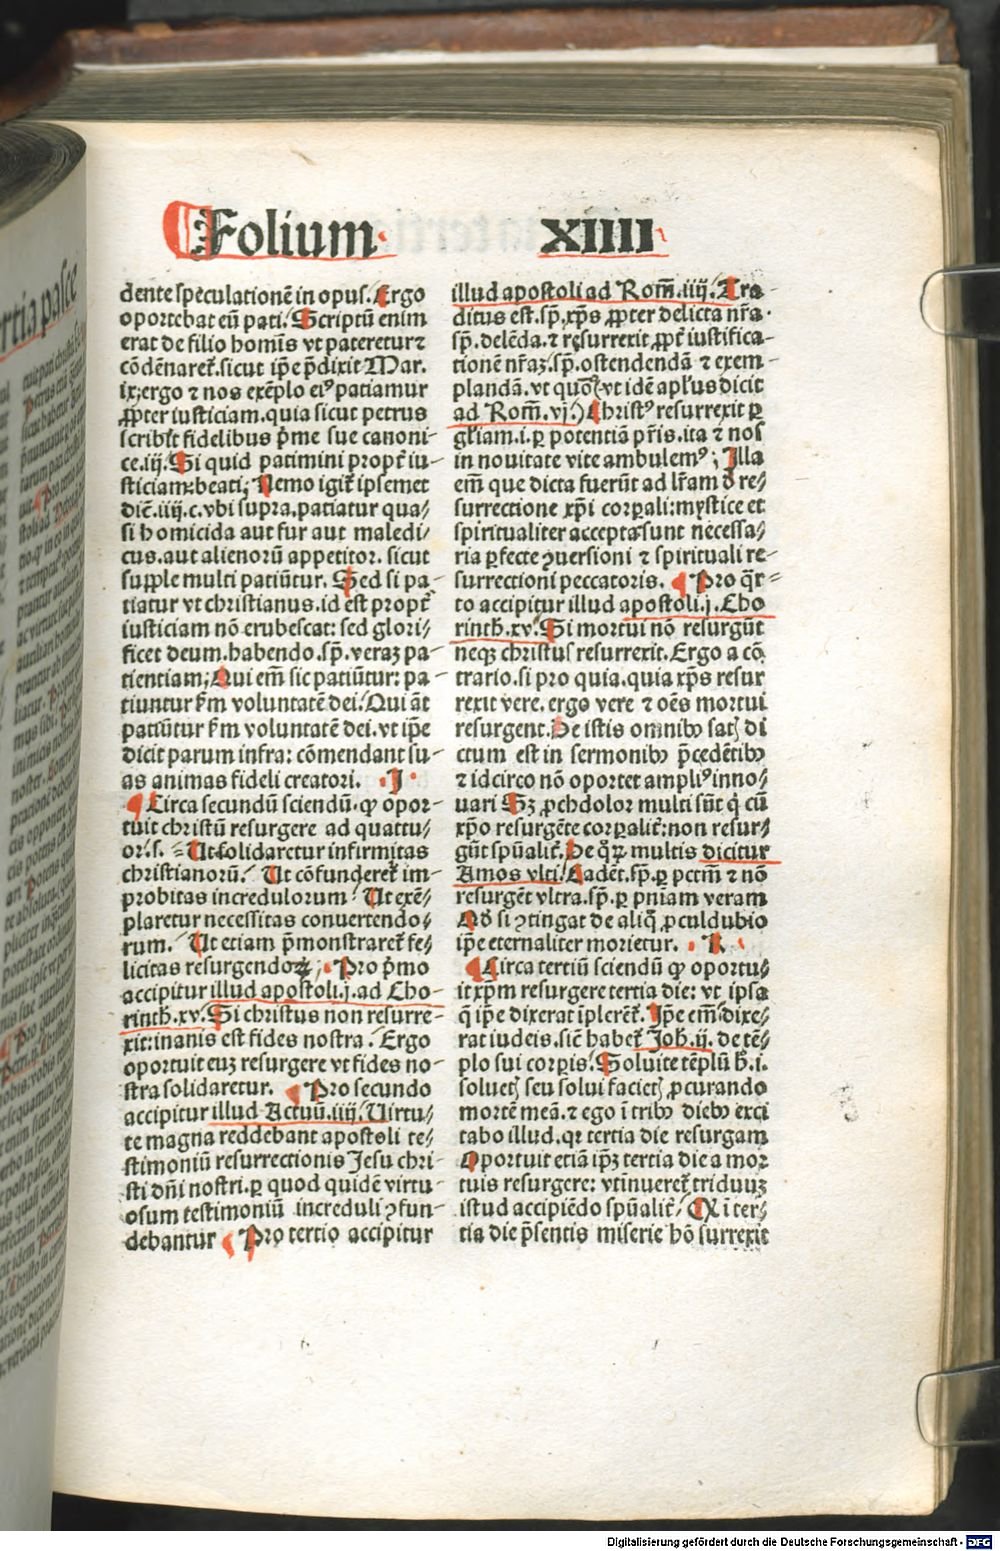 Folium XIIII
dente speculationē in opus. Ergo
oportebat eū pati. Scriptū enim
erat de filio homīs vt pateretur ⁊
cōdēnaret᷑. sicut ip̄e p̄dixit Mar.
ix; ergo ⁊ nos exēplo eiꝰ patiamur
ꝓpter iusticiam. quia sicut petrus
scribit fidelibus p̄me sue canoni-
ce. iij. Si quid patimini propt̄ iu-
sticiam: beati; Nemo igit᷑ ipsemet
dic̄. iiij. c. vbi supra, patiatur qua/
si homicida aut fur aut maledi/
cus. aut alienorū appetitor. sicut
supple multi patiūtur. Sed si pa-
tiatur vt christianus. id est propt̄
iusticiam nō erubescat: sed glori/
ficet deum. habendo. sp̄. veraz pa-
tientiam; Qui em̄ sic patiūtur: pa-
tiuntur km̄ voluntatē dei. Qui āt
patiūtur km̄ voluntatē dei. vt ip̄e
dicit parum infra: cōmendant su-
as animas fideli creatori. · J ·
¶ Circa secundū sciendū. ꝙ opor-
tuit christū resurgere ad quattu/
or. s. = Ut solidaretur infirmitas
christianorū. Ut cōfunderet᷑ im-
probitas incredulorum Ut exē-
plaretur necessitas conuertendo/
rum. Ut etiam p̄monstraret᷑ fe/
licitas resurgendoꝝ; Pro p̄mo
accipitur illud apostoli. j. ad Cho-
rinth. xv. Si christus non resurre-
xit: inanis est fides nostra. Ergo
oportuit euz resurgere vt fides no-
stra solidaretur. ¶ Pro secundo
accipitur illud Actuū. iiij. Virtu/
te magna reddebant apostoli te/
stimoniū resurrectionis Jesu chri-
sti dn̄i nostri. ꝑ quod quidē virtu-
osum testimoniū increduli ꝯfun-
debantur ¶ Pro tertio accipitur
illud apostoli ad Rom̄. iiij. Tra-
ditus est. sp̄. xp̄s ꝓpter delicta nr̄a.
sp̄. delēda. ⁊ resurrexit ꝓpt̄ iustifica-
tionē nr̄az. sp̄. ostendendā ⁊ exem-
plandā. vt quo vt idē apl'us dicit
ad Rom̄. vj. Christꝰ resurrexit ꝑ
gl'iam. i. ꝑ potentiā pr̄is. ita ⁊ nos
in nouitate vite ambulemꝰ; Illa
em̄ que dicta fuerūt ad lr̄am d̄ re/
surrectione xp̄i corꝑali: mystice et
spiritualiter accepta sunt necessa/
ria ꝑfecte ꝯuersioni ⁊ spirituali re-
surrectioni peccatoris. ¶ Pro q̄r-
to accipitur illud apostoli. j. Cho
rinth. xv. Si mortui nō resurgūt
neqꝫ christus resurrexit. Ergo a cō
trario. si pro quia. quia xp̄s resur
rexit vere. ergo vere ⁊ oēs mortui
resurgent. De istis omnibꝰ satꝭ di
ctum est in sermonibꝰ p̄cedētibꝰ
⁊ idcirco nō oportet ampliꝰ inno/
uari Sꝫ ꝓchdolor multi sūt q̇ cū
xp̄o resurgēte corꝑalit᷑: non resur/
gūt sp̄ualit᷑. De q̄ꝝ multis dicitur
Amos vlti. Cadēt. sp̄. ꝑ pctm̄ ⁊ nō
resurgēt vltra. sp̄. ꝑ pn̄iam veram
Qd̄ si ꝯtingat de aliq̄ ꝓculdubio
ip̄e eternaliter morietur. · K ·
¶ Circa tertiū sciendū ꝙ oportu/
it xp̄m resurgere tertia die: vt ipsa
q̄ ip̄e dixerat īpleret᷑. Ip̄e em̄ dixe/
rat iudeis. sic̄ habet᷑ Joh. ij. de tē/
plo sui corꝑis. Soluite tēplū h̄. i.
soluetꝭ seu solui facietꝭ ꝓcurando
mortē meā. ⁊ ego ī tribꝰ diebꝰ exci
tabo illud. qꝛ tertia die resurgam
Oportuit etiā ip̄ꝫ tertia die a moꝛ
tuis resurgere: vt īnueret᷑ triduuꝫ
istud accipiēdo sp̄ualit᷑ / Qꝛ i ter/
tia die p̄sentis miserie hō surrexit
Digitalisierung gefördert durch die Deutsche Forschungsgemeinschaft - DFG